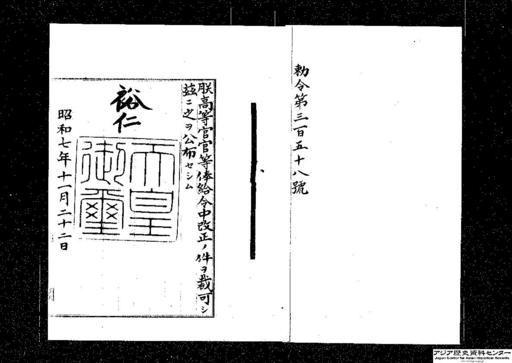 勅令第三百五十八號
朕高等官官等俸給令中改正ノ件ヲ裁可シ
茲ニ之ヲ公布セシム
裕仁
天皇
御璽
昭和七年十一月二十二日
アジア歴史資料センター
Japan Center for Asian Historical Records